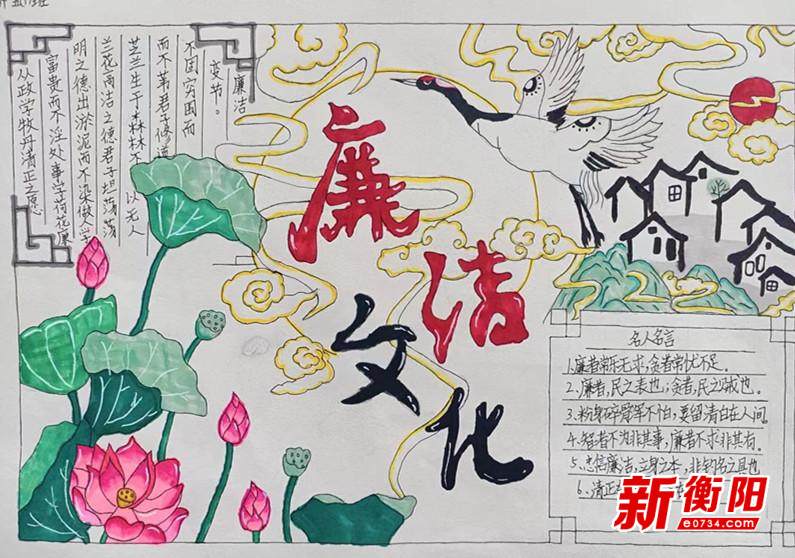 班
廉洁
变节。
不因穷困而
而不君子修
芝兰生于森林不以无人
兰花雨洁之德君子坦荡荡
明之德出淤泥而不染做人学
富贵而不淫处事学荷花
从政学牧丹清正之愿
廉洁
文化
名人名言
1.廉者常乐无求,贪者常忧不足。
2.廉者,民之表也;贪者,民之贼也。
3.粉身碎骨浑不怕,要留清白在人间。
4.智者不为非其事,廉者不求非其有。
5.忠信廉洁,立身之本,非钓名之具也
6.清正
新衡阳
e0734.com